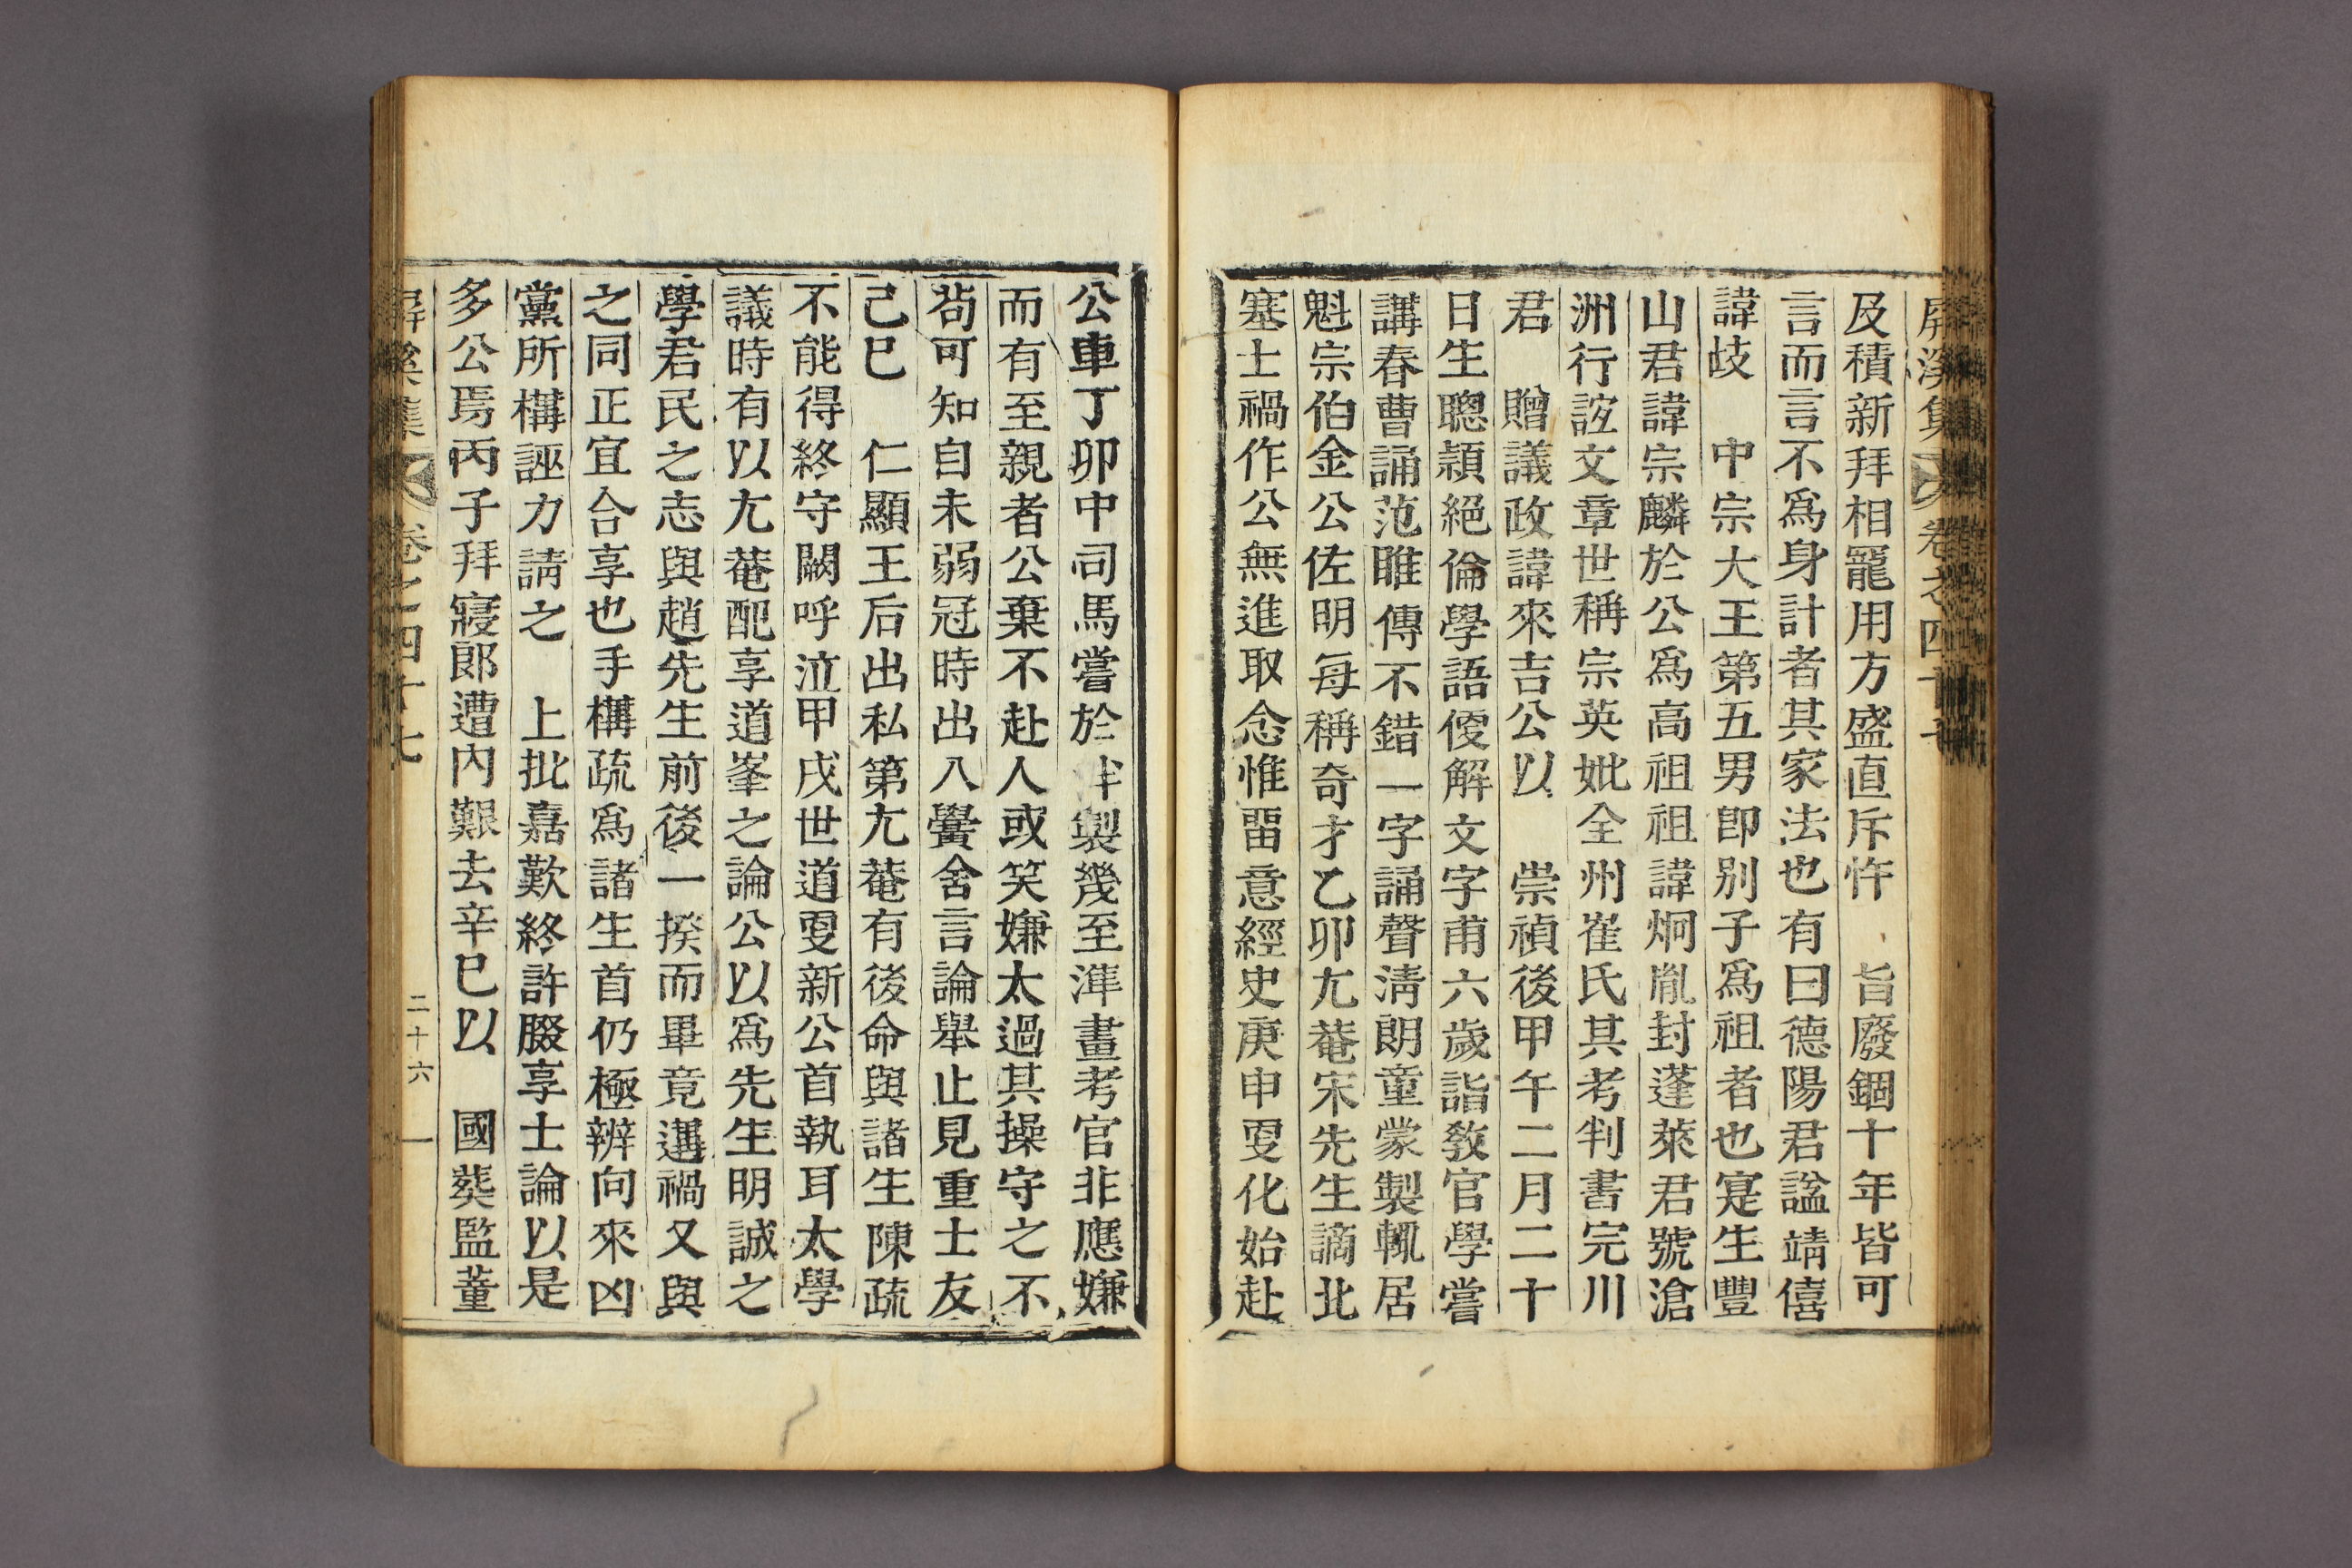 屛溪集 卷之四十七
及積新拜相寵用方盛直斥忤 旨廢錮十年皆可
言而言不爲身計者其家法也有曰德陽君諡靖僖
諱歧 中宗大王第五男卽别子爲祖者也寔生豐
山君諱宗麟於公爲高祖祖諱炯胤封蓬萊君號滄
洲行誼文章世稱宗英妣全州崔氏其考判書完川
君 贈議政諱來吉公以 崇禎後甲午二月二十
日生聰穎絕倫學語便解文字甫六歲詣敎官學嘗
講春曹誦范雎傳不錯一字誦聲淸朗童蒙製輒居
魁宗伯金公佐明每稱奇才乙卯尤菴宋先生謫北
塞士禍作公無進取念惟畱意經史庚申更化始赴
公車丁卯中司馬嘗於泮製幾至準畫考官非應嫌
而有至親者公棄不赴人或笑嫌太過其操守之不
苟可知自未弱冠時出入黌舍言論舉止見重士友
己巳 仁顯王后出私第尤菴有後命與諸生陳疏
不能得終守闕呼泣甲戌世道更新公首執耳太學
議時有以尤菴配享道峯之論公以爲先生明誠之
學君民之志與趙先生前後一揆而畢竟遘禍又與
之同正宜合享也手構疏爲諸生首仍極辨向來凶
黨所構誣力請之 上批嘉歎終許腏享士論以是
多公焉丙子拜寢郞遭內艱去辛巳以 國葬監董
屛溪集 卷之四十七 二十六